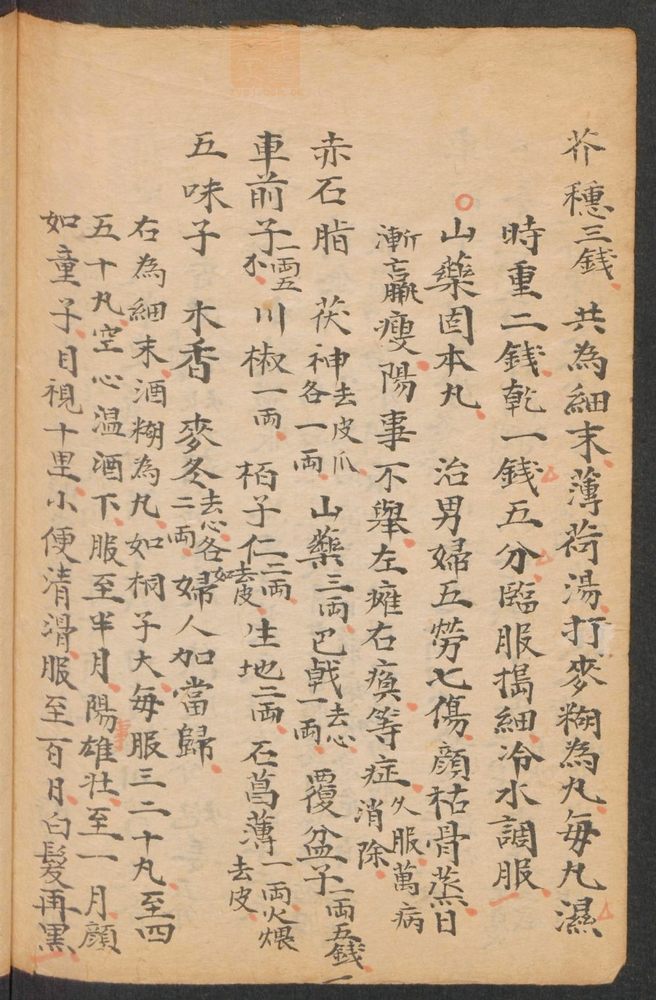 芥穗三錢 共為細末薄荷湯打麥糊為丸每丸濕
時重二錢乾一錢五分臨服搗細冷水調服
山藥固本丸 治男婦五勞七傷顏枯骨蒸日
漸羸瘦陽事不舉左癱右瘓等症久服萬病消除
赤石脂 茯神去皮爪各一兩 山藥三兩 巴戟去心一兩 覆盆子一兩五錢
車前子一兩五 川椒一兩 栢子仁二兩去皮 生地二兩 石菖薄一兩火煨去皮
五味子 木香 麥冬去心各二兩 如婦人加當歸
右為細末酒糊為丸如桐子大每服三二十丸至四
五十丸空心温酒下服至半月陽事雄壮至一月顏
如童子目視十里小便清滑服至百日白髮再黑